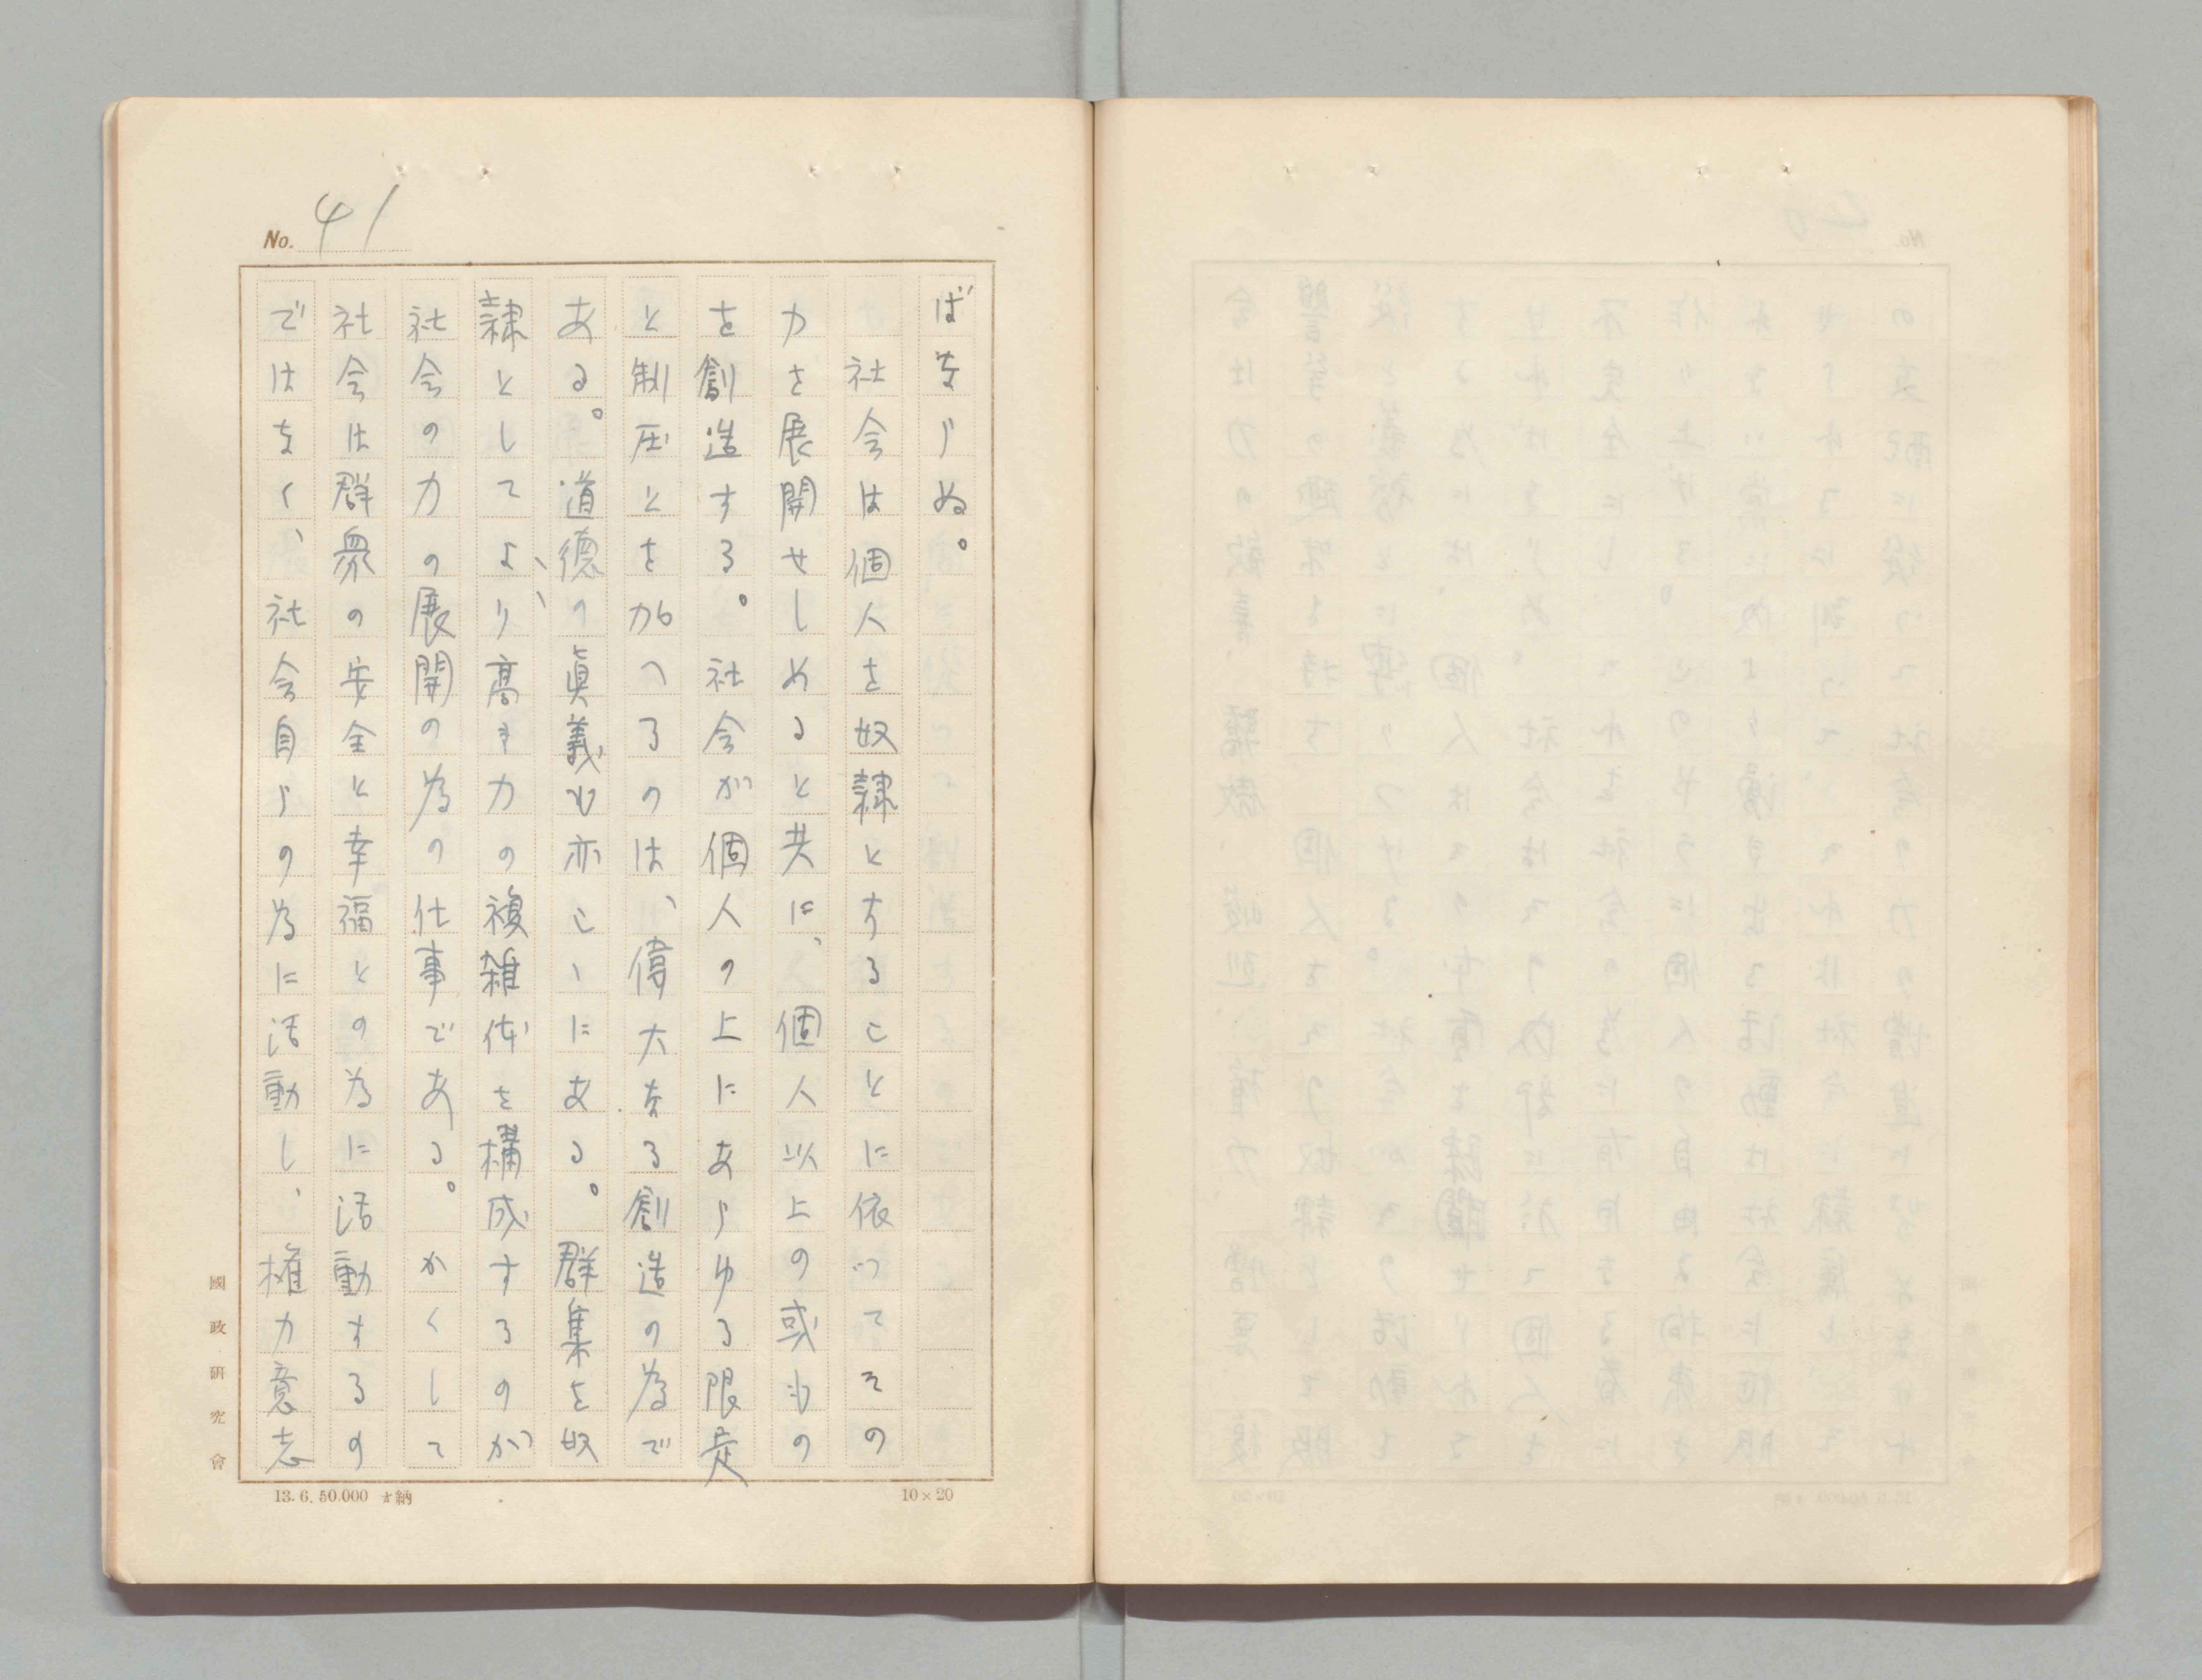 No. 41
ばならぬ。
社会は個人を奴隷とすることに依つてその
力を展開せしめると共に、個人以上の或もの
を創造する。社会が個人の上にあらゆる限定
と制圧とを加へるのは、偉大なる創造の為で
ある。道徳の真義も亦こゝにある。群集を奴
隷としてより高き力の複雑体を構成するのが
社会の力の展開の為の仕事である。かくして
社会は群衆の安全と幸福との為に活動するの
ではなく、社会自らの為に活動し、権力意志
國政研究會
13.6.50.000 納
10×20